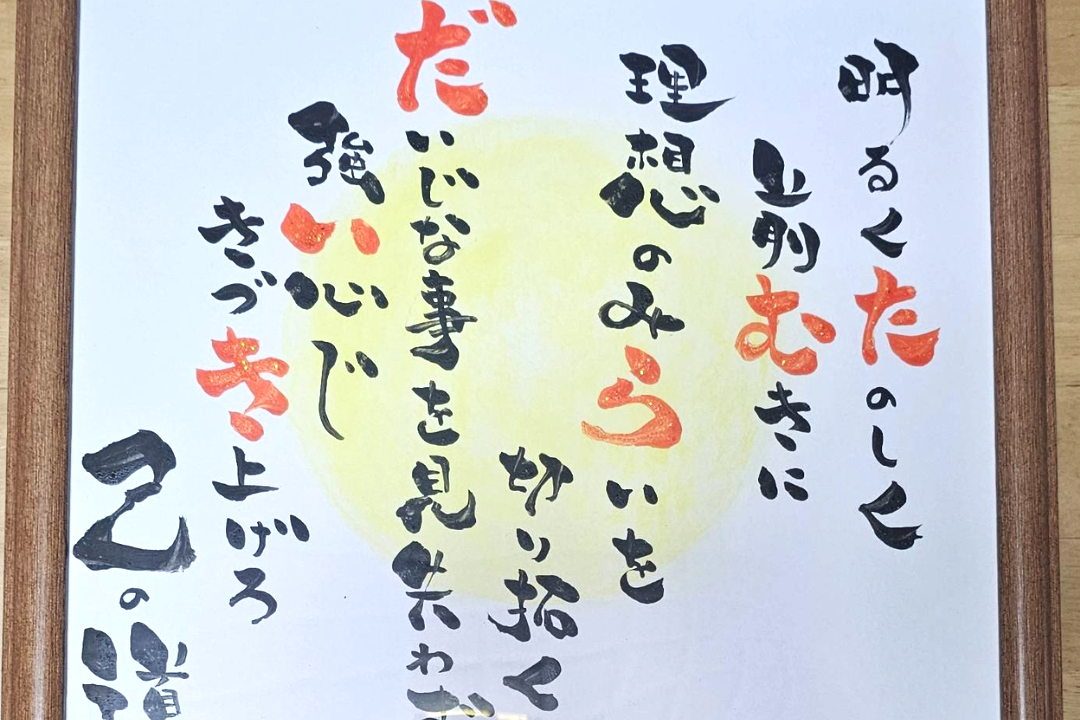 明るくたのしく
上前むきに
理想のみらいを
切り拓く
だいじな事を見失わず
強い心じ
きづき上げろ
己の道